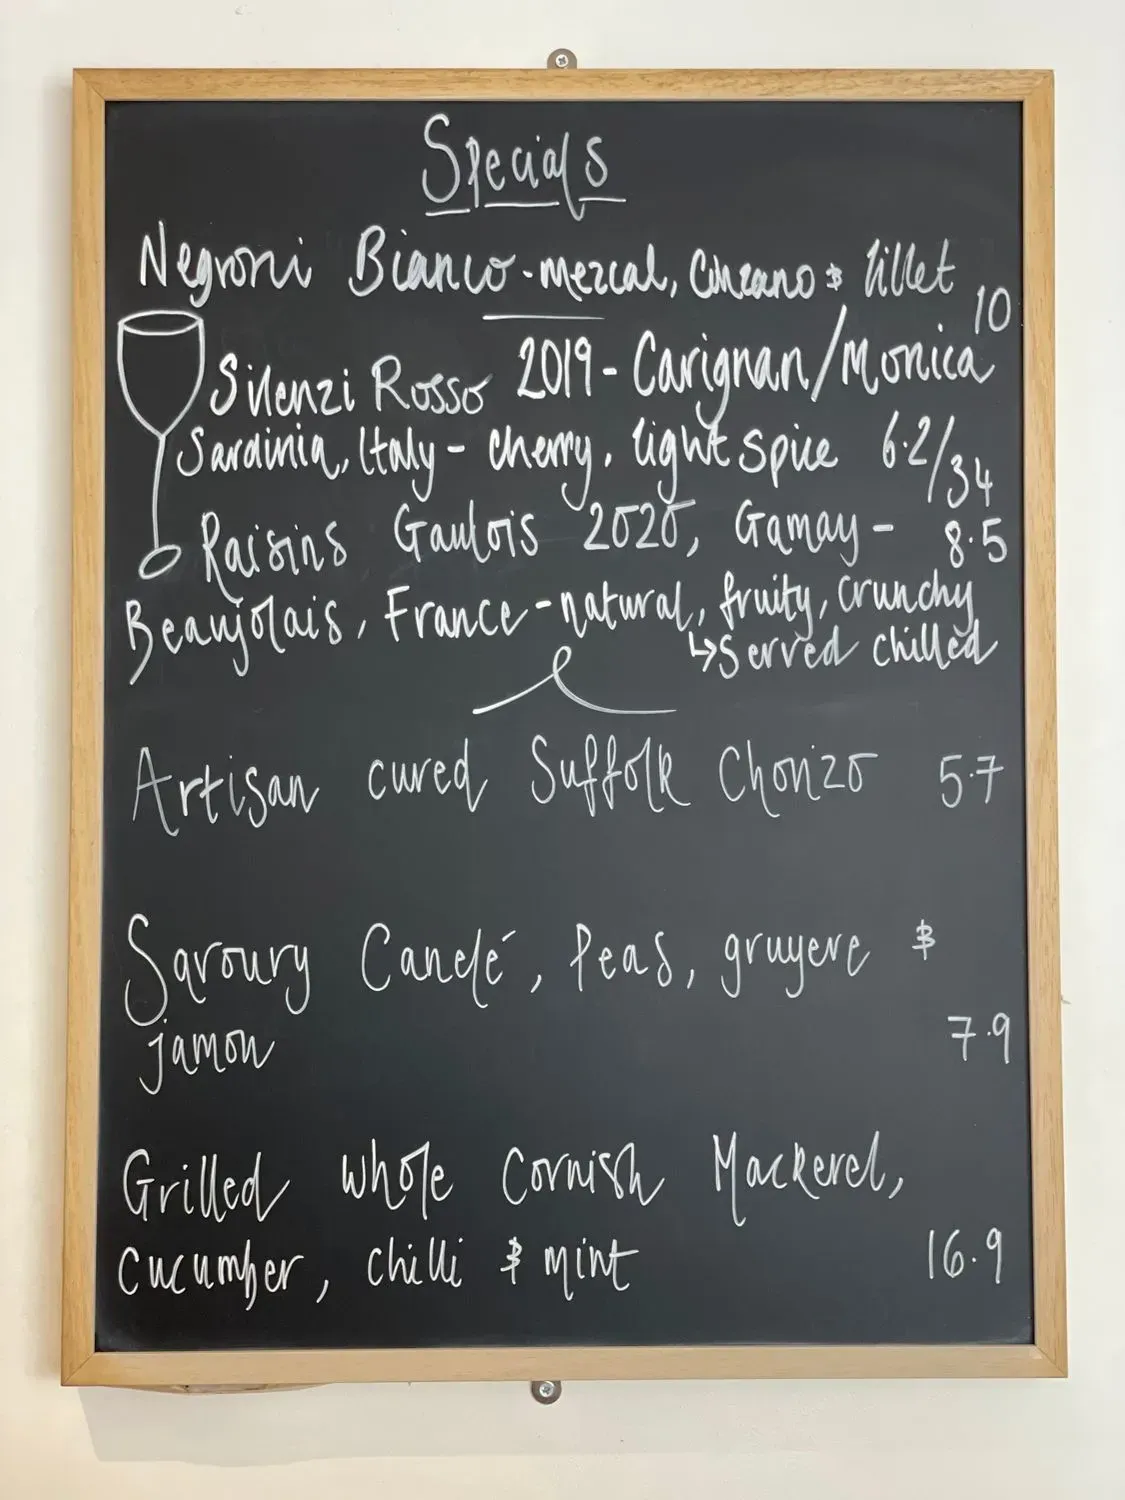 Specials
Negroni Bianco - mezcal, Cinzano & lillet
10
Silenzi Rosso 2019 - Carignan/Monica
Sardinia, Italy - cherry, light spice 6.2/34
Raisins Gaulois 2020, Gamay - 8.5
Beaujolais, France - natural, fruity, crunchy
↳ Served chilled
Artisan cured Suffolk Chorizo 5.7
Savoury Canelé, Peas, gruyere &
jamon 7.9
Grilled whole Cornish Mackerel,
Cucumber, chilli & mint 16.9